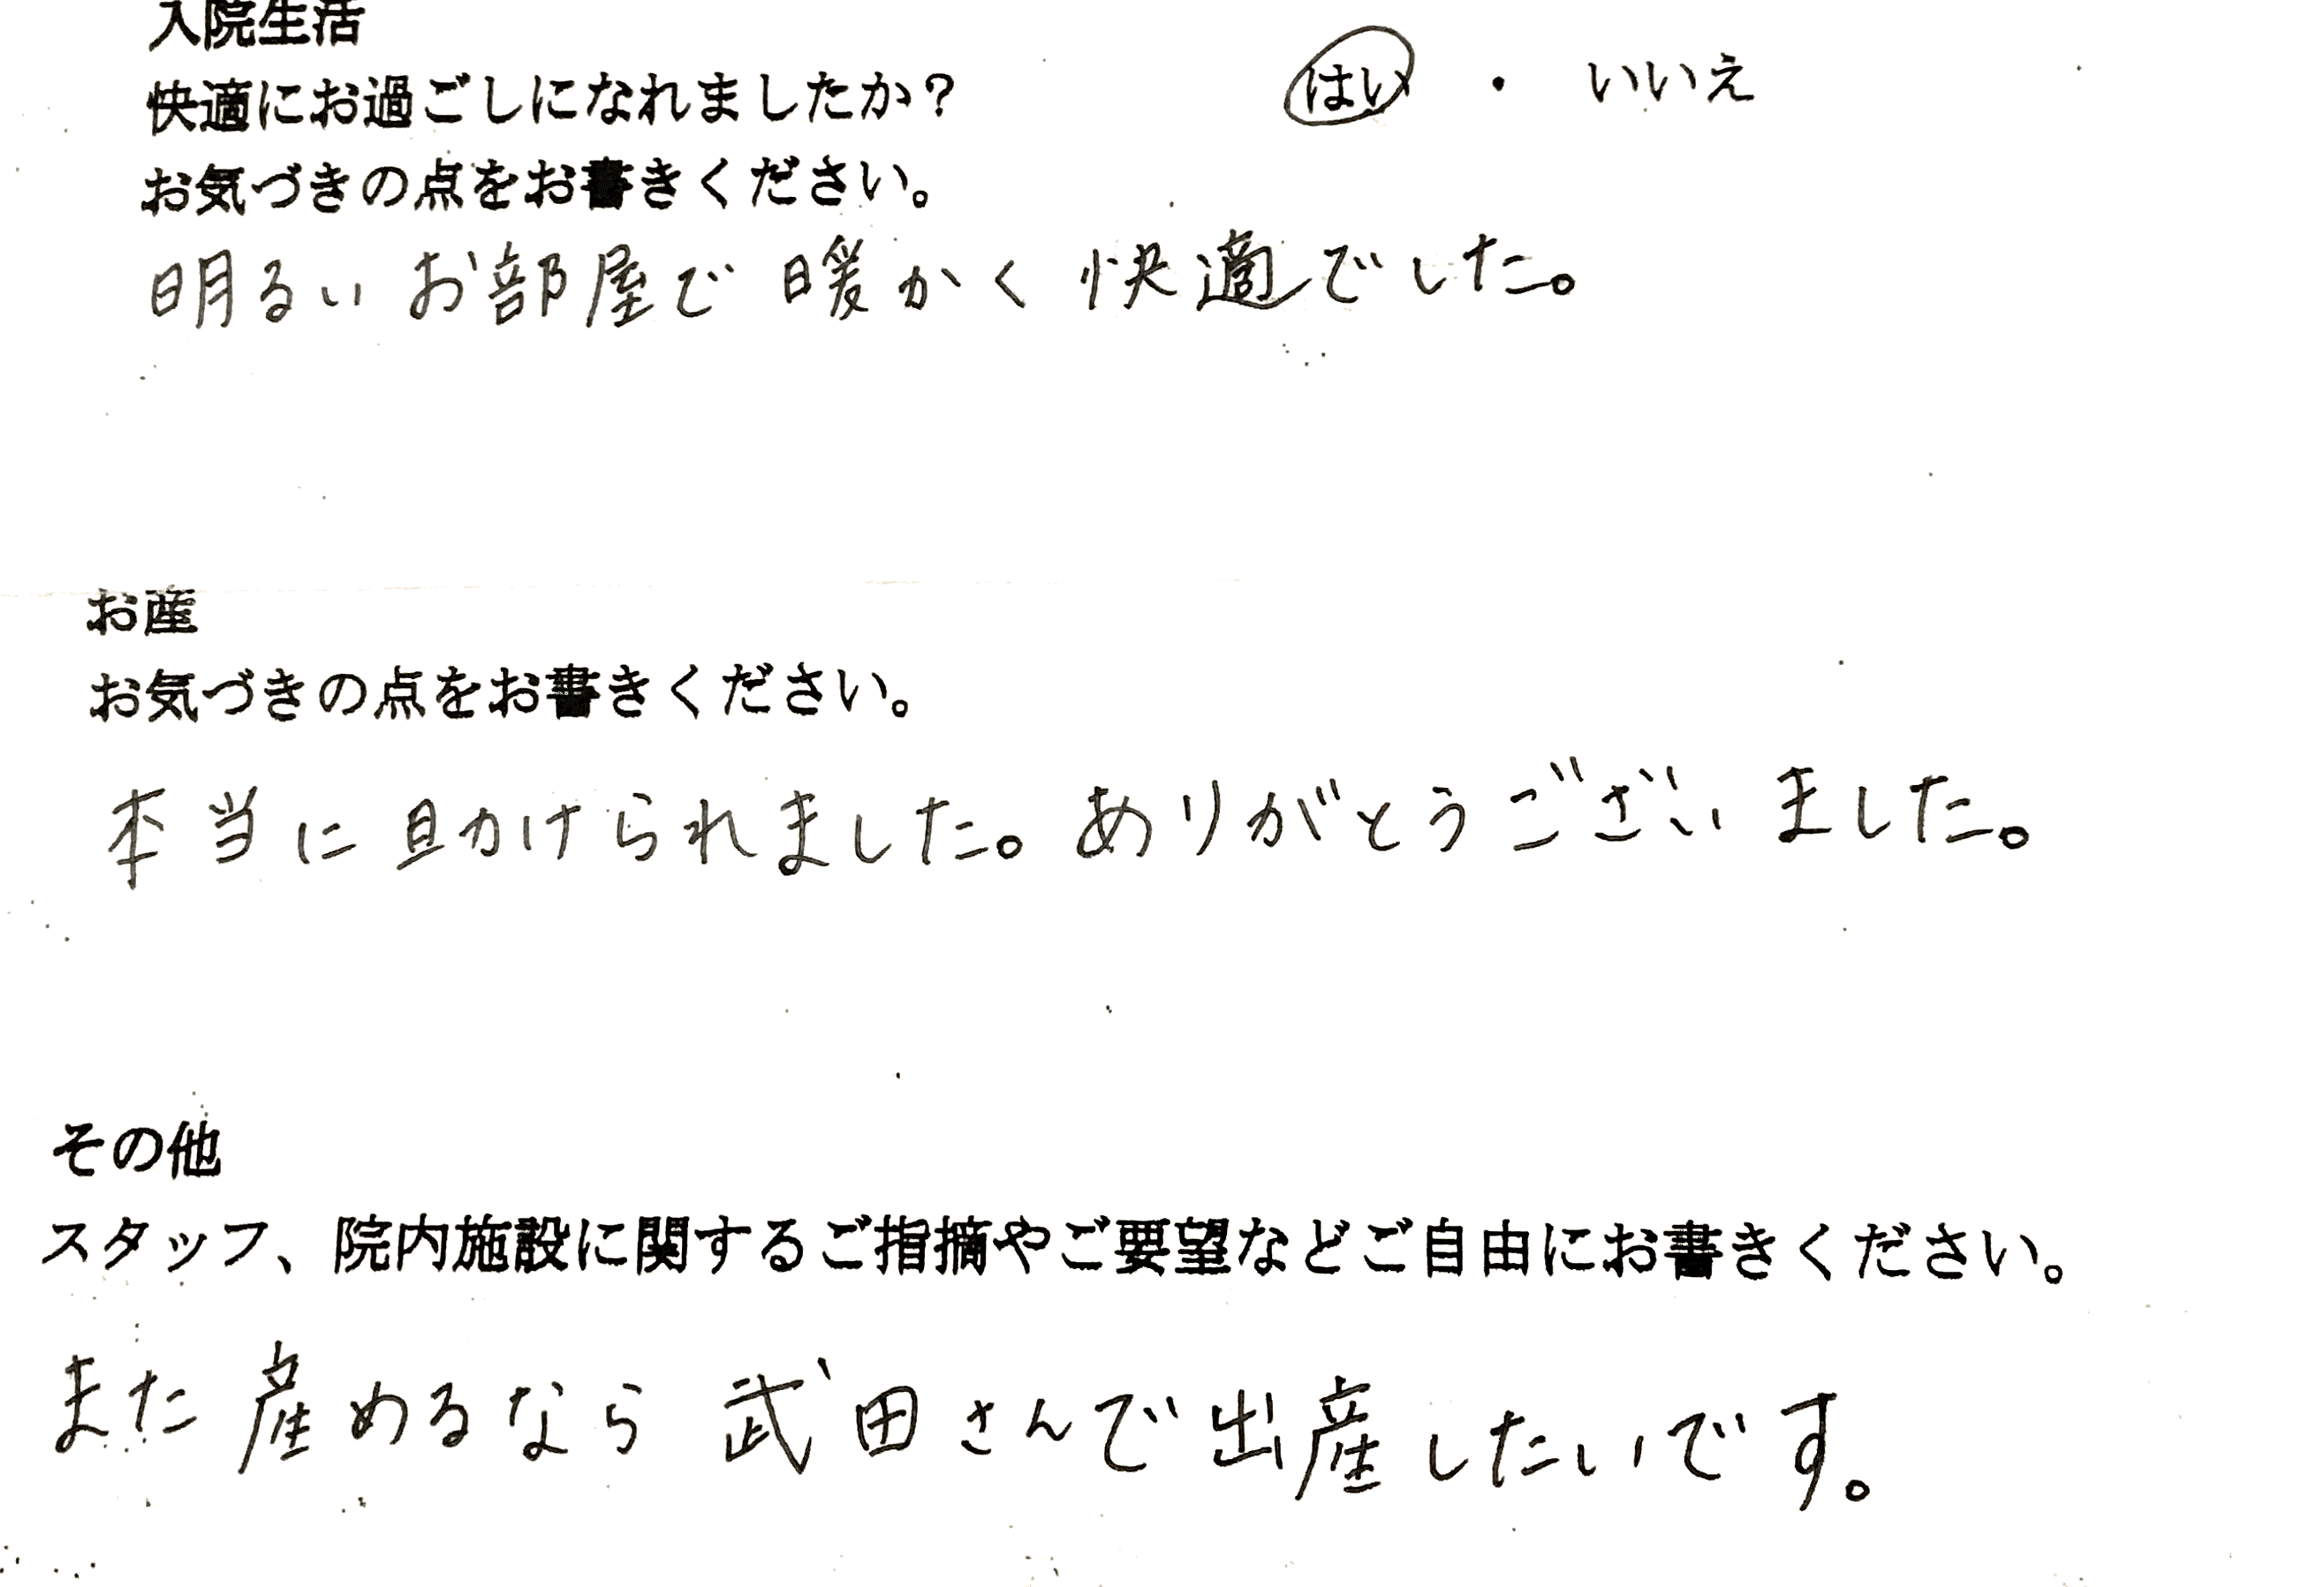 入院生活
快適にお過ごしになれましたか? はい ・ いいえ
お気づきの点をお書きください。
明るいお部屋で暖かく快適でした。
お産
お気づきの点をお書きください。
本当に助けられました。ありがとうございました。
その他
スタッフ、院内施設に関するご指摘やご要望などご自由にお書きください。
また産めるなら武田さんで出産したいです。